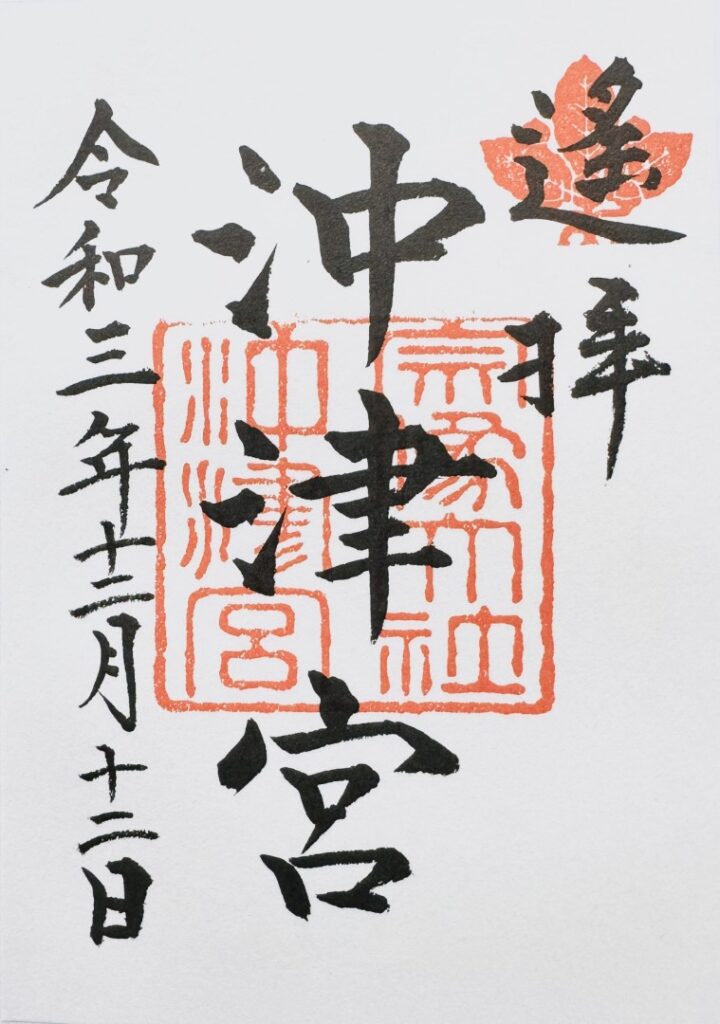 遥拝
沖津宮
宗像大社
沖津宮
令和三年十二月十二日